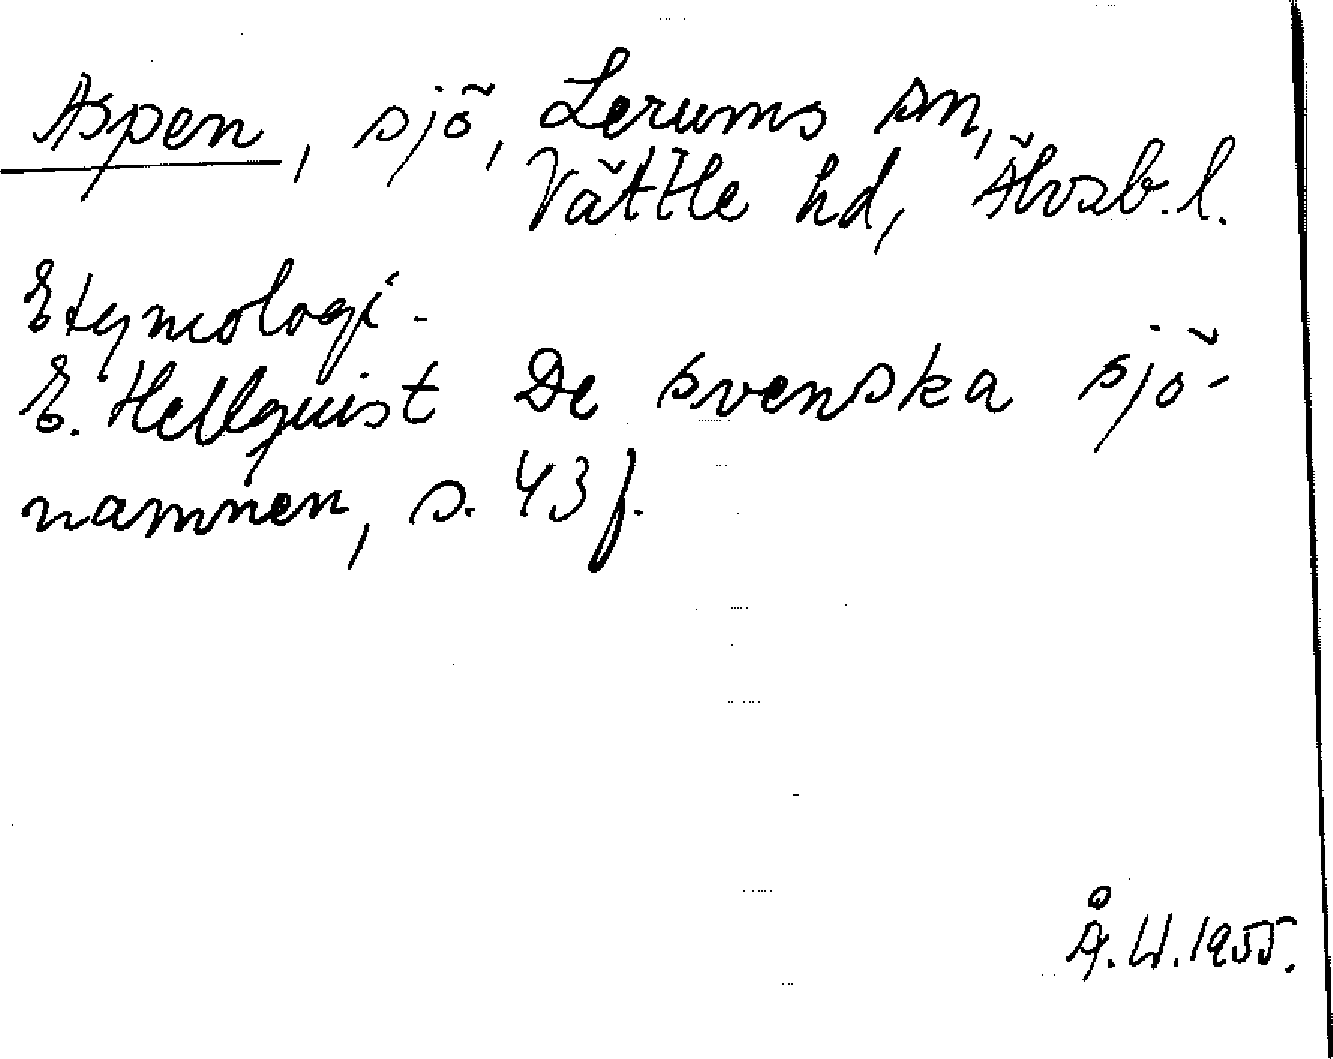 Aspen, sjö, Lerums sn,
Vättle hd, Älvsb. l.
Etymologi.
E. Hellquist De svenska sjö-
namnen, s. 43 f.
Å. W. 1955.